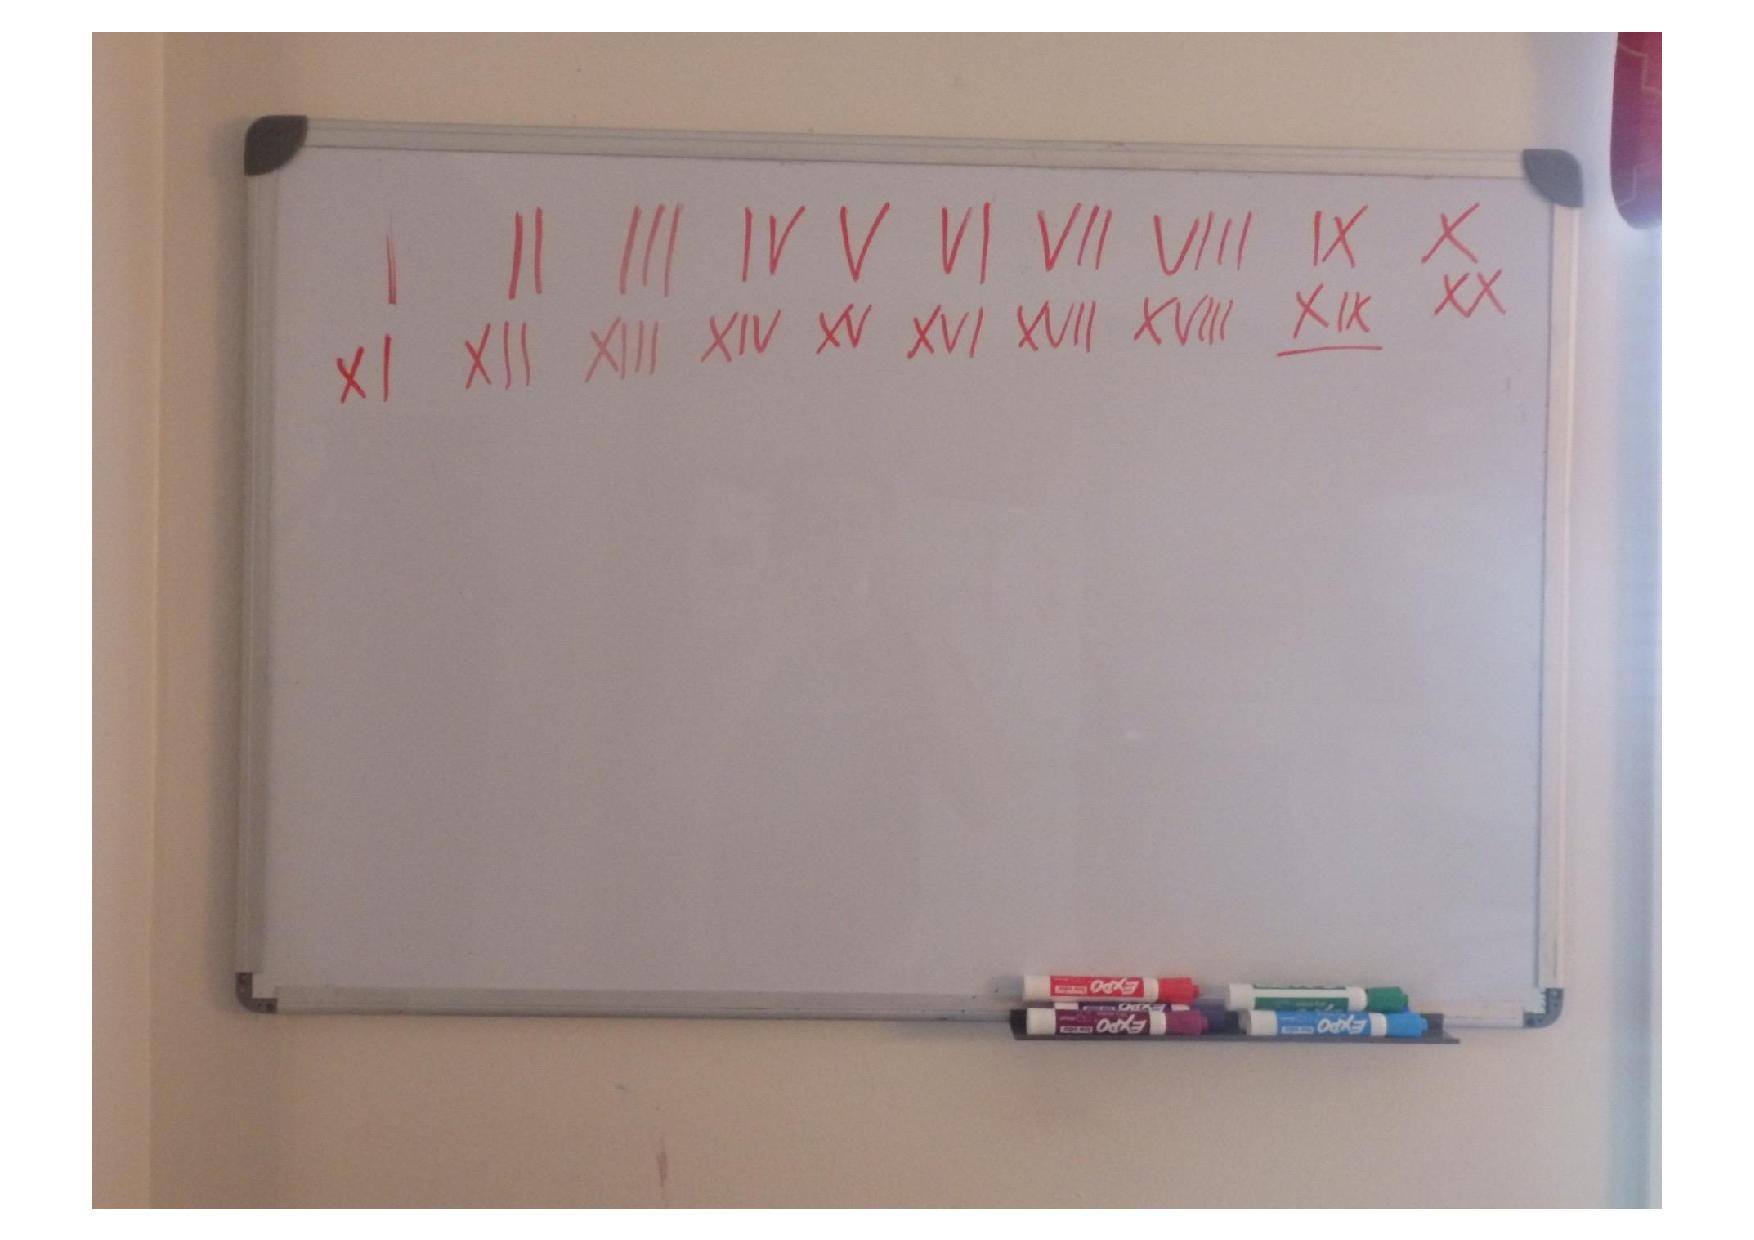 I II III IV V VI VII VIII IX X
XI XII XIII XIV XV XVI XVII XVIII XIX XX
EXPO
EXPO
EXPO